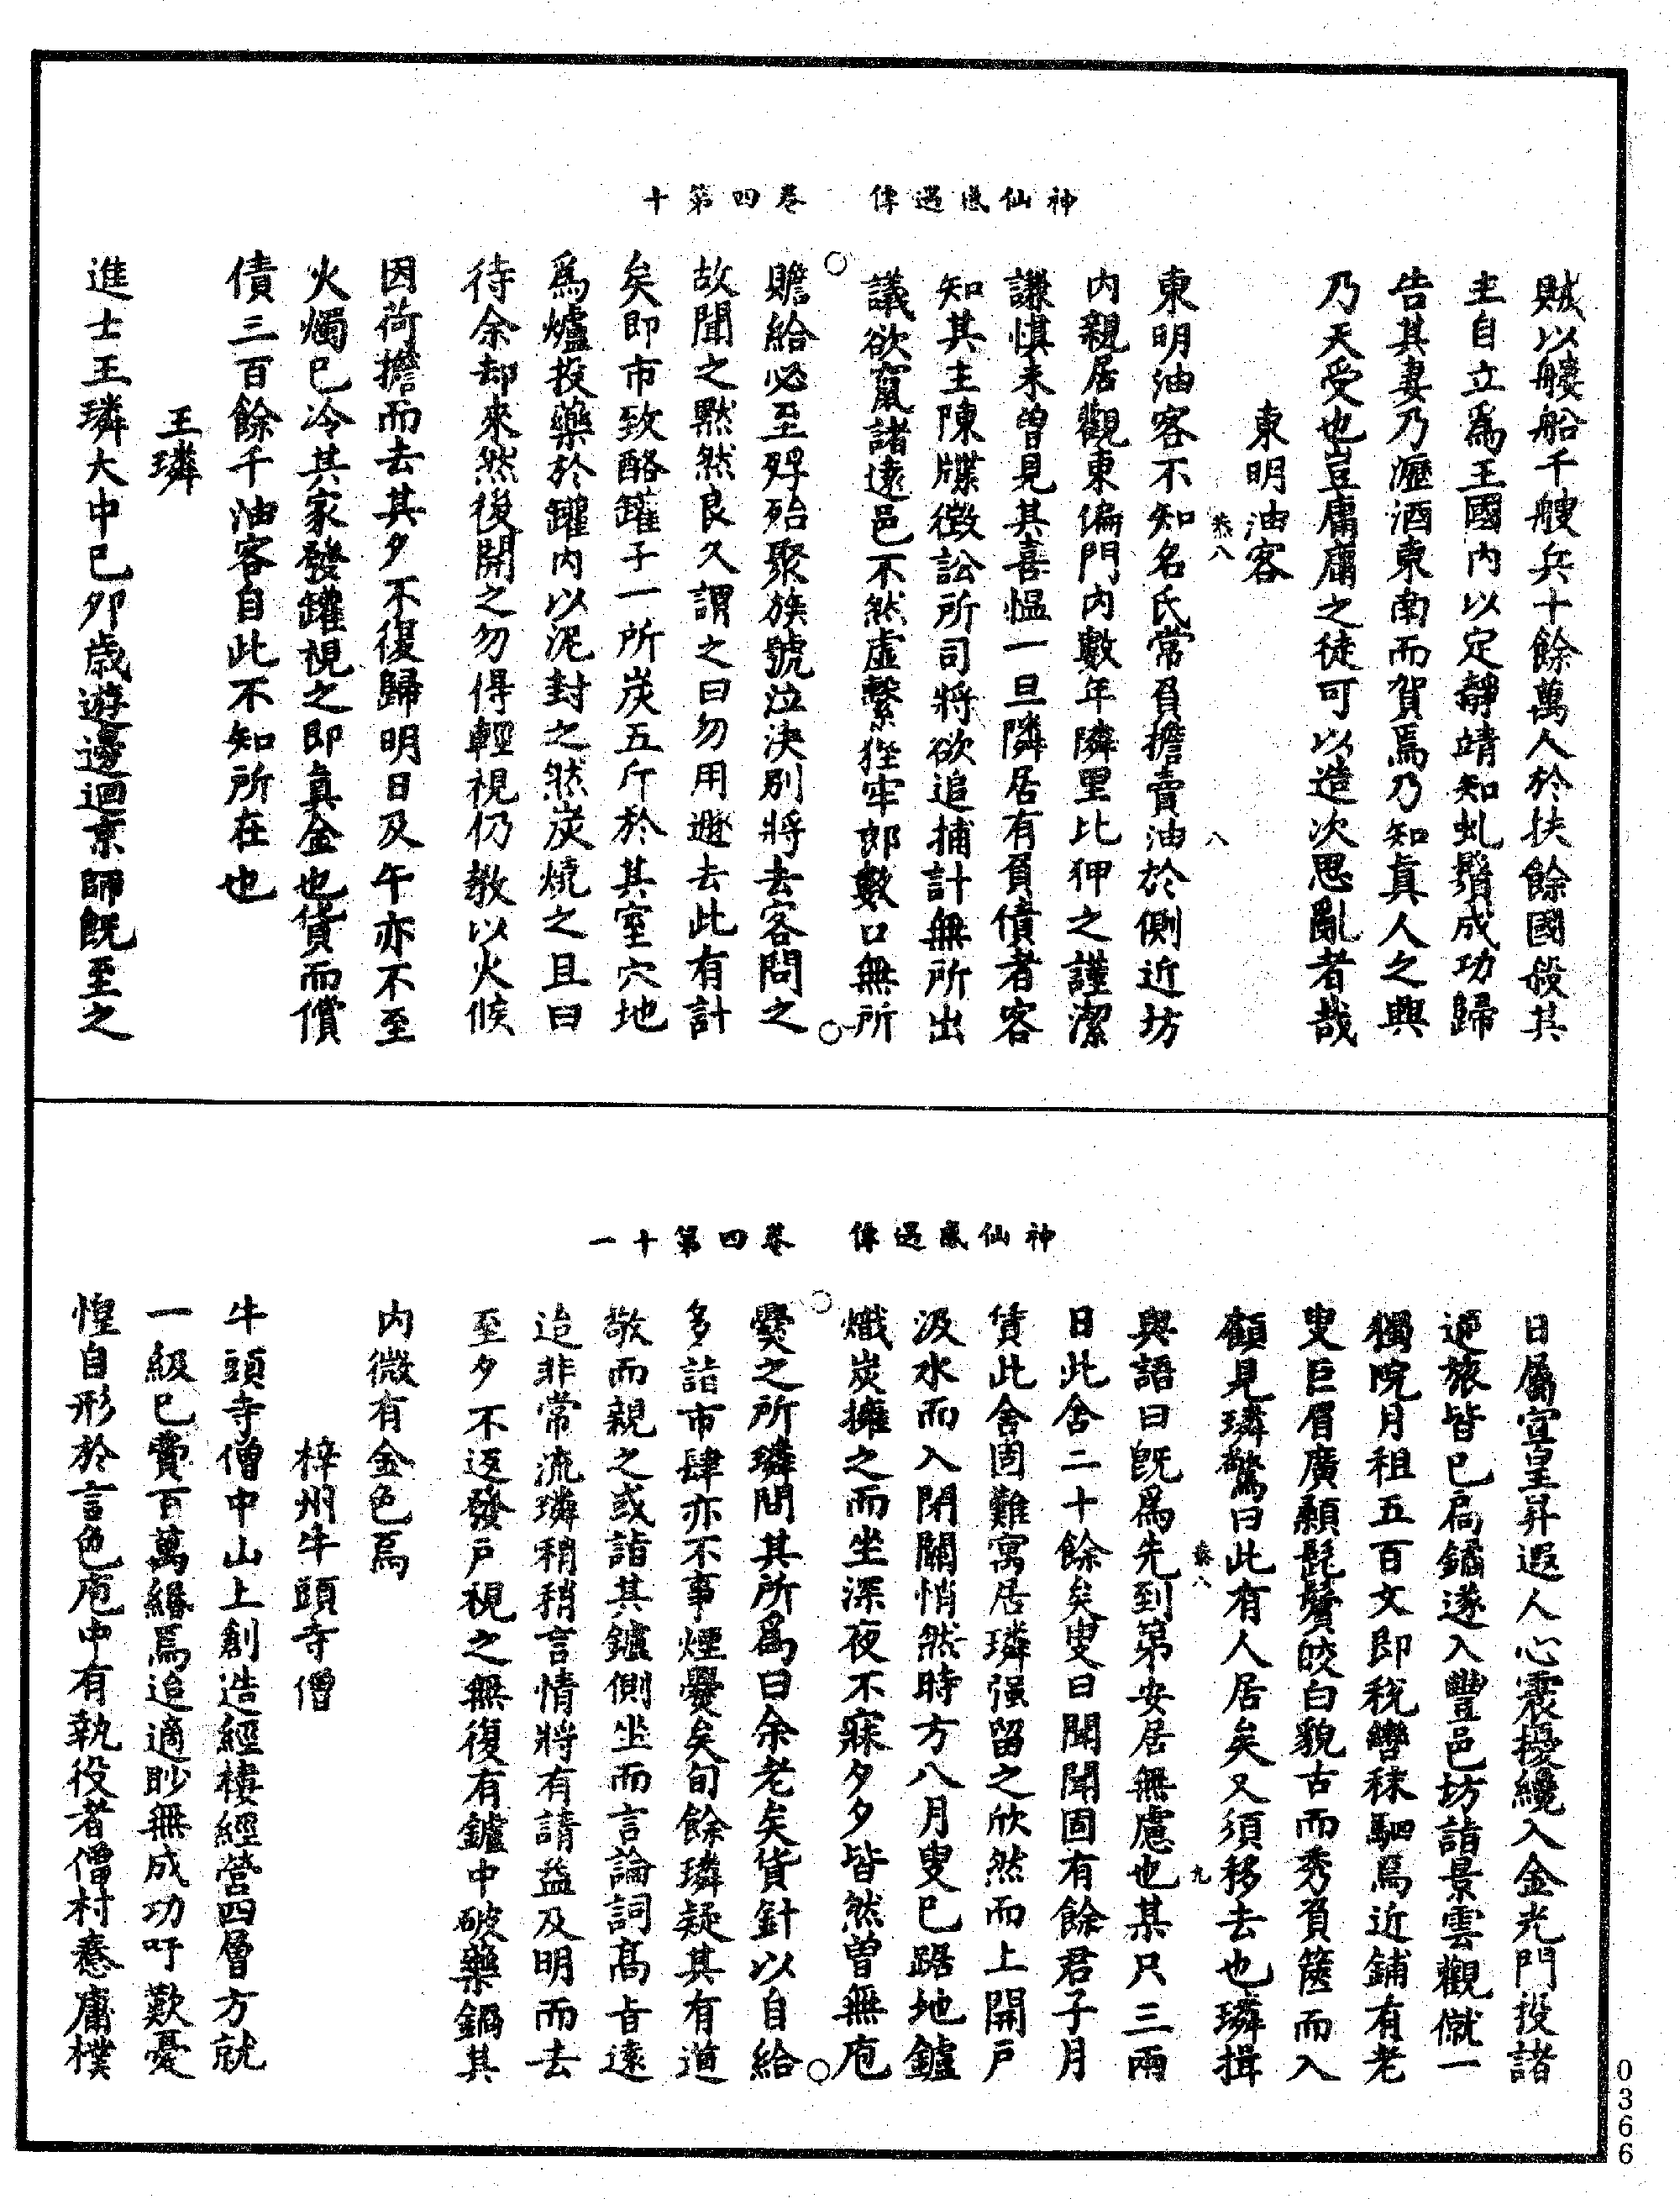 神仙感遇傳　卷四第十
賊以艛船千艘兵十餘萬人於扶餘國殺其
主自立爲王國內以定靜靖知虬鬚成功歸
告其妻乃瀝酒東南而賀焉乃知真人之興
乃天受也豈庸庸之徒可以造次思亂者哉
東明油客
恭八　八
東明油客不知名氏常負擔賣油於側近坊
内親居觀東偏門內數年隣里比狎之謹潔
謙慎未曾見其喜愠一旦隣居有負債者客
知其主陳牒徵訟所司將欲追捕計無所出
議欲竄諸遠邑不然虛繫狴牢郎數口無所
贍給必至殍殆聚族號泣決別將去客問之
故聞之默然良久謂之曰勿用遯去此有計
矣即市致酪罐子一所炭五斤於其室穴地
爲爐投藥於罐内以泥封之然炭燒之且曰
待余却來然後開之勿得輕視仍教以火候
因荷擔而去其夕不復歸明日及午亦不至
火燭已冷其家發罐視之即真金也貨而償
債三百餘千油客自此不知所在也
王璘
進士王璘大中己卯歲遊邊迴京師旣至之
神仙感遇傳　卷四第十一
日屬宣皇昇遐人心震擾纔入金光門投諸
逆旅皆已扃鐍遂入豐邑坊詣景雲觀僦一
獨院月租五百文即稅轡秣駟焉近鋪有老
叟巨眉廣顙髭鬢皎白貌古而秀負篋而入
顧見璘驚曰此有人居矣又須移去也璘揖
恭八　九
與語曰旣爲先到第安居無慮也某只三兩
日此舍二十餘矣叟曰聞聞固有餘君子月
賃此舍固難寓居璘强留之欣然而上開戶
汲水而入閉關悄然時方八月叟已踞地鑪
熾炭擁之而坐深夜不寐夕夕皆然曾無庖
爨之所璘問其所爲曰余老矣貨針以自給
多詣市肆亦不事煙爨矣旬餘璘疑其有道
敬而親之或詣其鑪側坐而言論詞高旨遠
迨非常流璘稍稍言情將有請益及明而去
至夕不返發戶視之無復有鑪中破藥鍋其
内微有金色焉
梓州牛頭寺僧
牛頭寺僧中山上創造經樓經營四層方就
一級已費百萬緡焉迨適眇無成功吁歎憂
惶自形於言色庖中有執役者僧村憃庸樸
0366